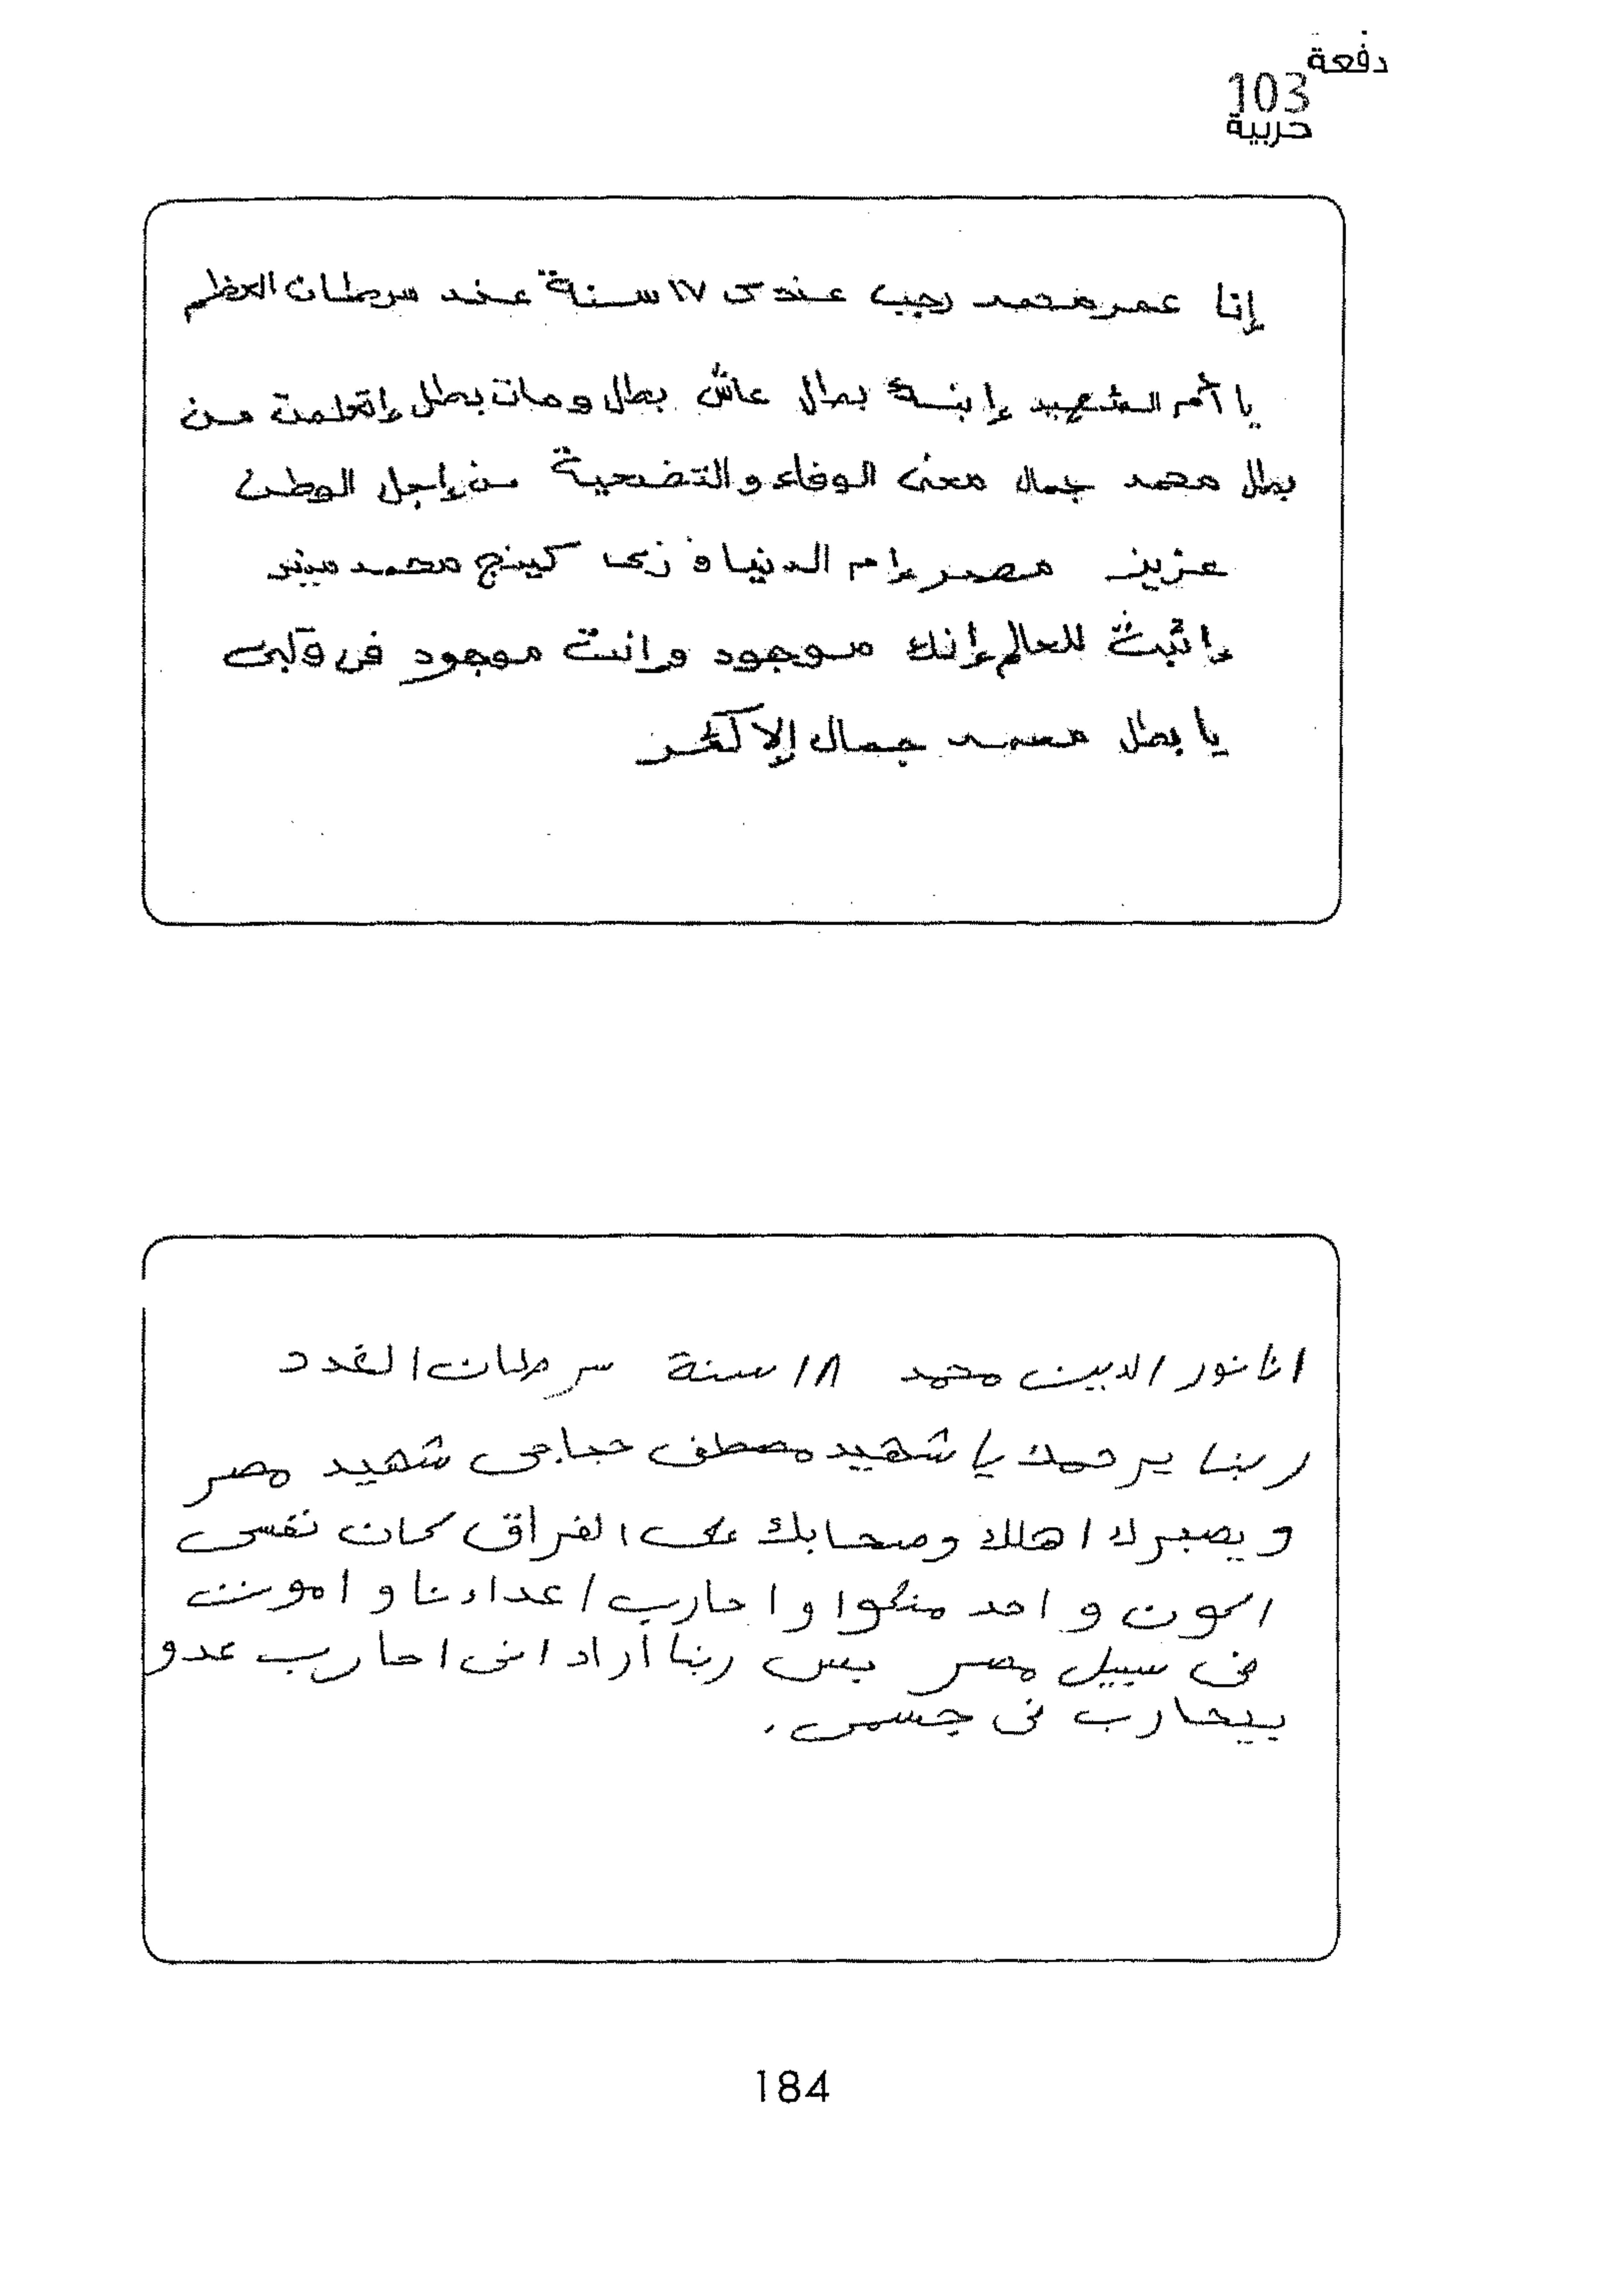 دفعة
103
حربية
إنا عمر محمد رجب عندى ١٧ سنة عند سرطان العظم
يا أم الشهيد إبنك بطل عاش بطل ومات بطل إتعلمت من
بطل محمد جمال معنى الوفاء والتضحية من إجل الوطن
عزيز مصر إم الدنيا زى كينج محمد منير
إثبت للعالم إنك موجود وإنت موجود فى قلبى
يا بطل محمد جمال إلاكثر
انا نور الدين محمد ١٨ سنة سرطان الغدد
ربنا يرحمك يا شهيد مصطفى حجاجى شهيد مصر
ويصبر اهلك وصحابك على الفراق كان نفسى
اكون واحد منكوا واحارب اعداءنا واموت
فى سبيل مصر بس ربنا أراد انى احارب عدو
بيحارب فى جسمى.
184